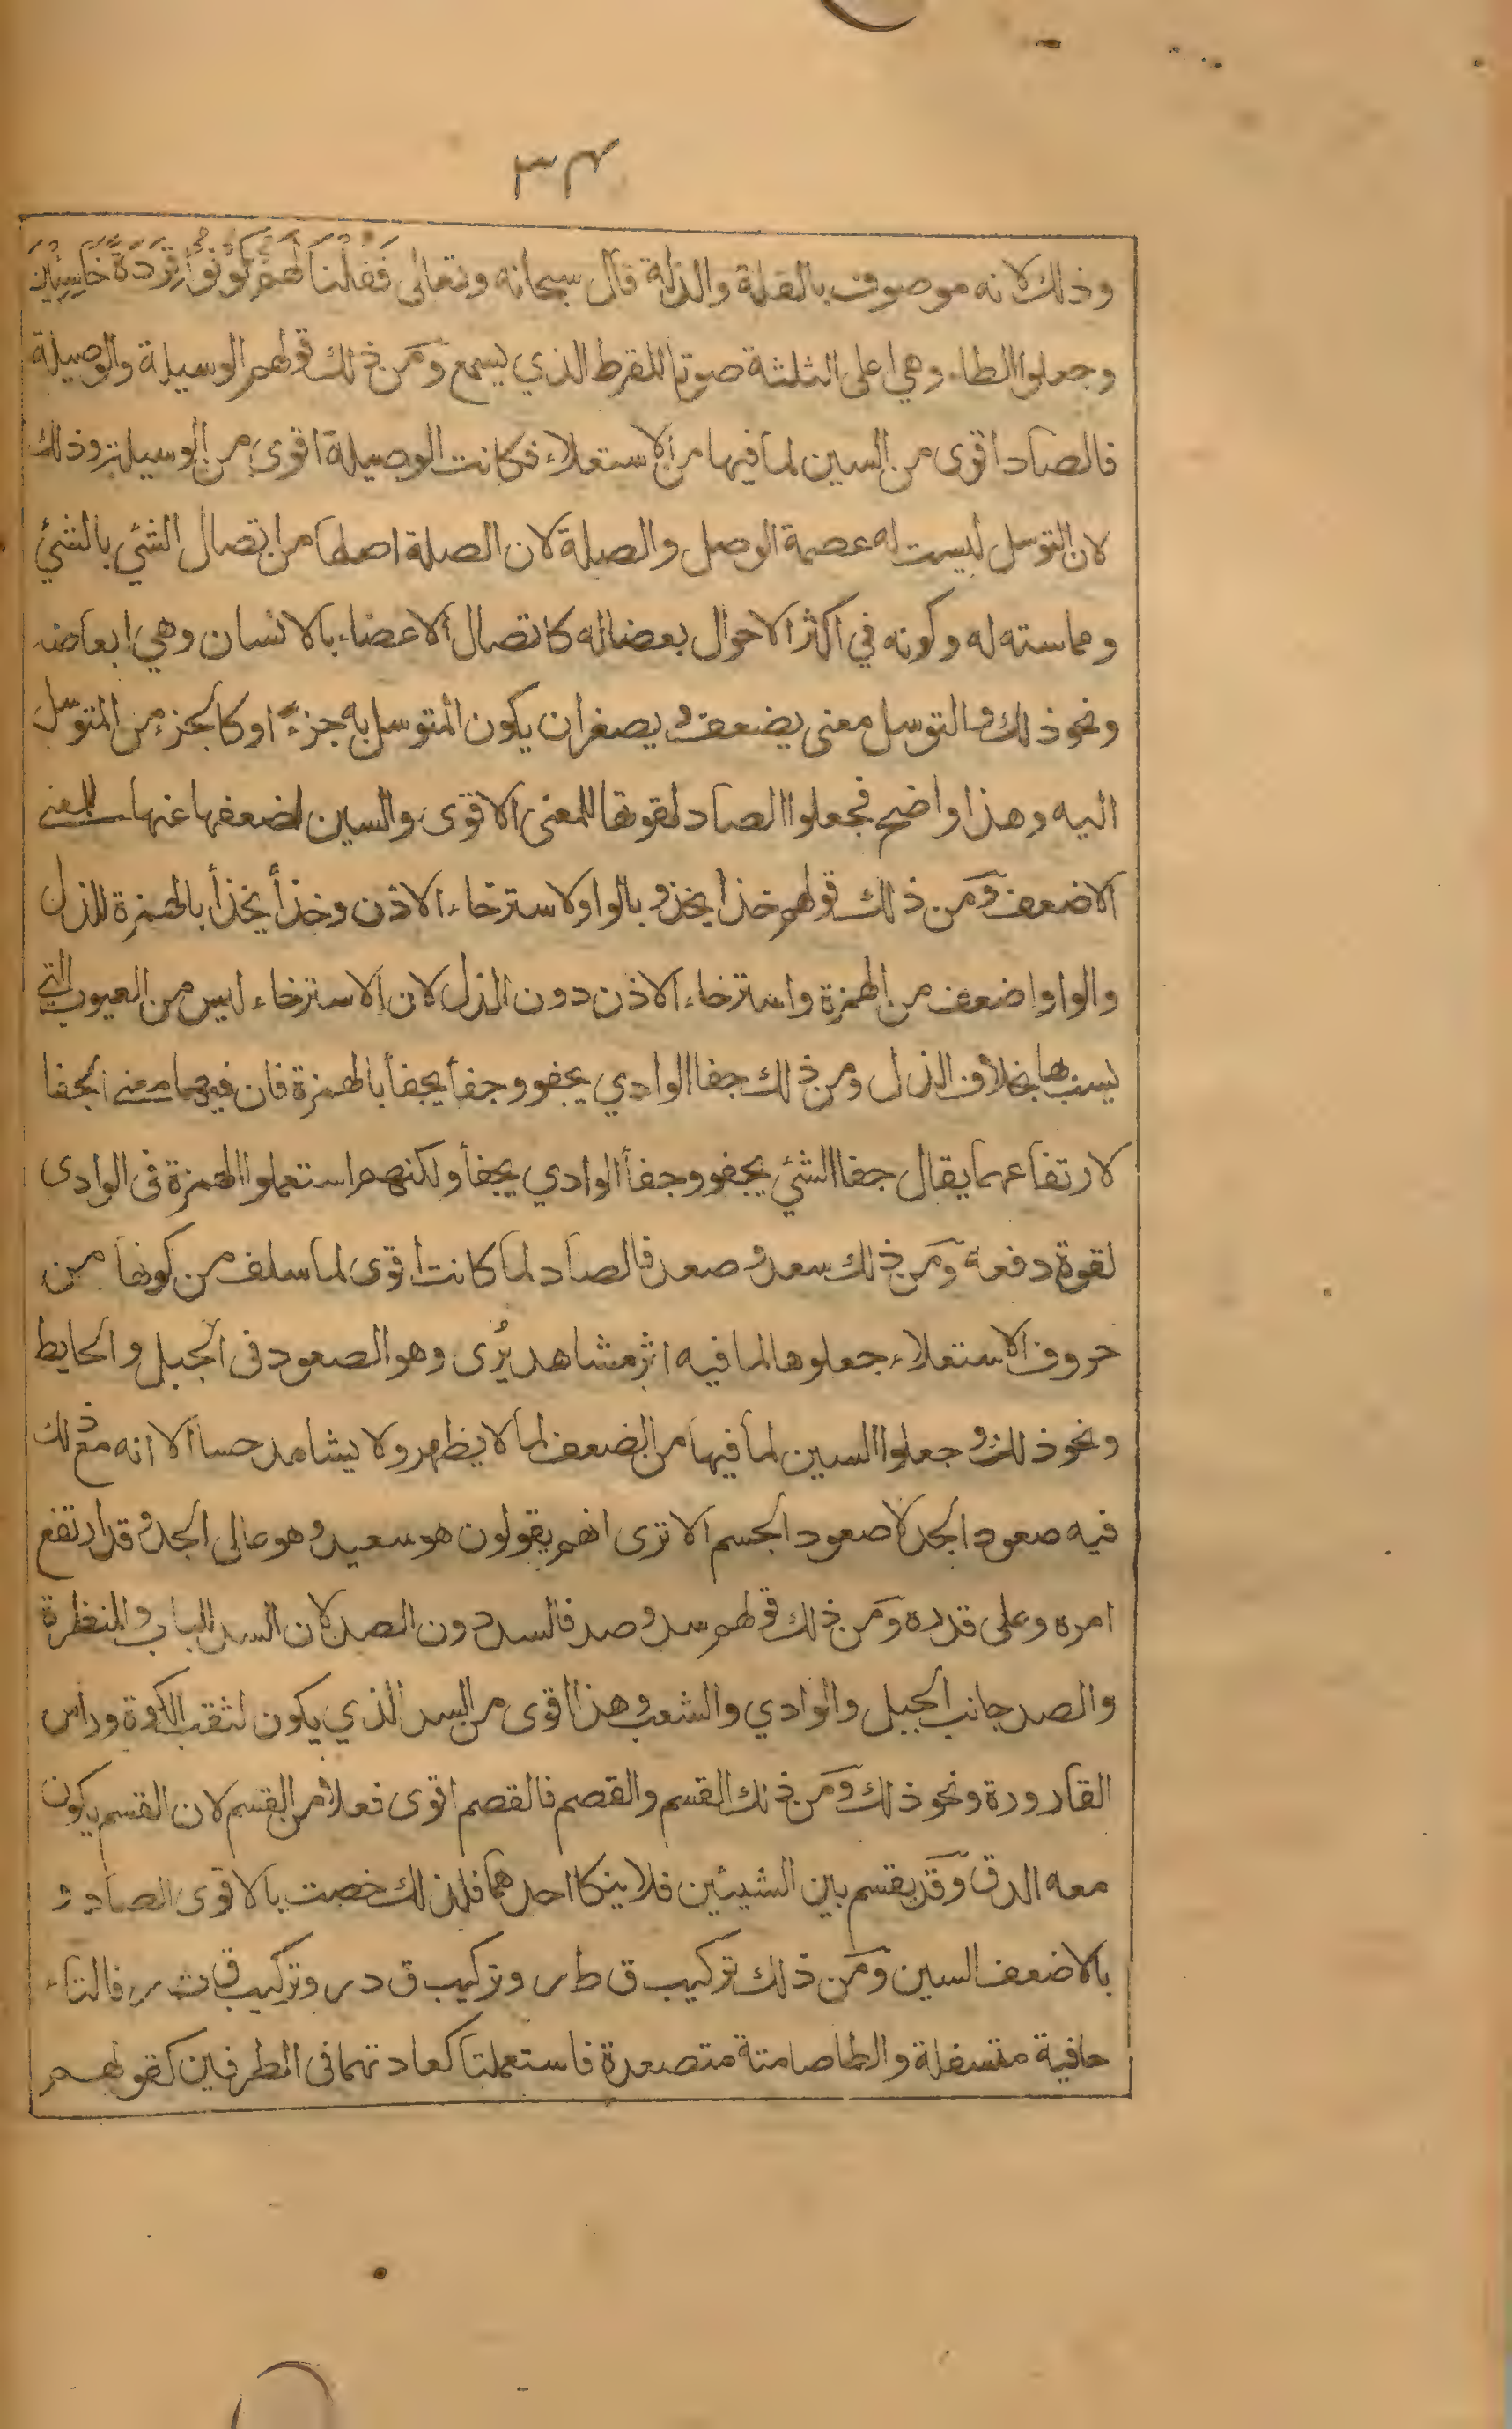 ٣٤
وذلك لانه موصوف بالقلة والذلة قال سبحانه وتعالى فَقُلْنَا لَهُمْ كُوْنُوْا قِرَدَةً خَاسِئِيْنَ
وجعلوا الطاء وهي اعلى الثلثة صوتا للقرط الذي يسمع ومن ذلك قولهم الوسيلة والوصيلة
فالصاد اقوى من السين لما فيها من الاستعلاء فكانت الوصيلة اقوى من الوسيلة وذلك
لان التوسل ليست له عصمة الوصل والصلة لان الصلة اصلها من اتصال الشئ بالشئ
ومماسته له وكونه في اكثر الاحوال بعضا له كاتصال الاعضاء بالانسان وهي ابعاضه
ونحو ذلك والتوسل معنى يضعف ويصغر ان يكون المتوسل به جزءً او كالجزء من المتوسل
اليه وهذا واضح فجعلوا الصاد لقوتها للمعنى الاقوى والسين لضعفها عنها للمعنى
الاضعف ومن ذلك قولهم خذا يخذو بالواو لاسترخاء الاذن وخذأ يخذأ بالهمزة للذل
والواو اضعف من الهمزة واسترخاء الاذن دون الذل لان الاسترخاء ليس من العيوب التي
يسب بها بخلاف الذل ومن ذلك جفا الوادي يجفو وجفأ يجفأ بالهمزة فان فيهما معنى الجفا
لارتفاعهما يقال جفا الشئ يجفو وجفأ الوادي يجفأ ولكنهم استعملوا الهمزة فى الوادى
لقوة دفعه ومن ذلك سعد وصعد فالصاد لما كانت اقوى لما سلف من كونها من
حروف الاستعلاء جعلوها لما فيه اثر مشاهد يُرى وهو الصعود فى الجبل والحايط
ونحو ذلك وجعلوا السين لما فيها من الضعف لما لا يظهر ولا يشاهد حسا الا انه مع ذلك
فيه صعود الجد لا صعود الجسم الا ترى انهم يقولون هو سعيد وهو عالى الجد وقد ارتفع
امره وعلى قدره ومن ذلك قولهم سد وصد فالسد دون الصد لان السد للباب والمنظرة
والصد جانب الجبل والوادي والشعب وهذا اقوى من السد الذي يكون لثقب الكوة وراس
القارورة ونحو ذلك ومن ذلك القسم والقصم فالقصم اقوى فعلا من القسم لان القسم يكون
معه الدق وقد يقسم بين الشيئين فلا ينكا احدهما فلذلك خصت بالاقوى الصاد و
بالاضعف السين ومن ذلك تركيب ق ط ر وتركيب ق د ر وتركيب ق ت ر فالتاء
خافية متسفلة والطا صامتة متصعدة فاستعملتا كعادتهما فى الطرفين كقولهم